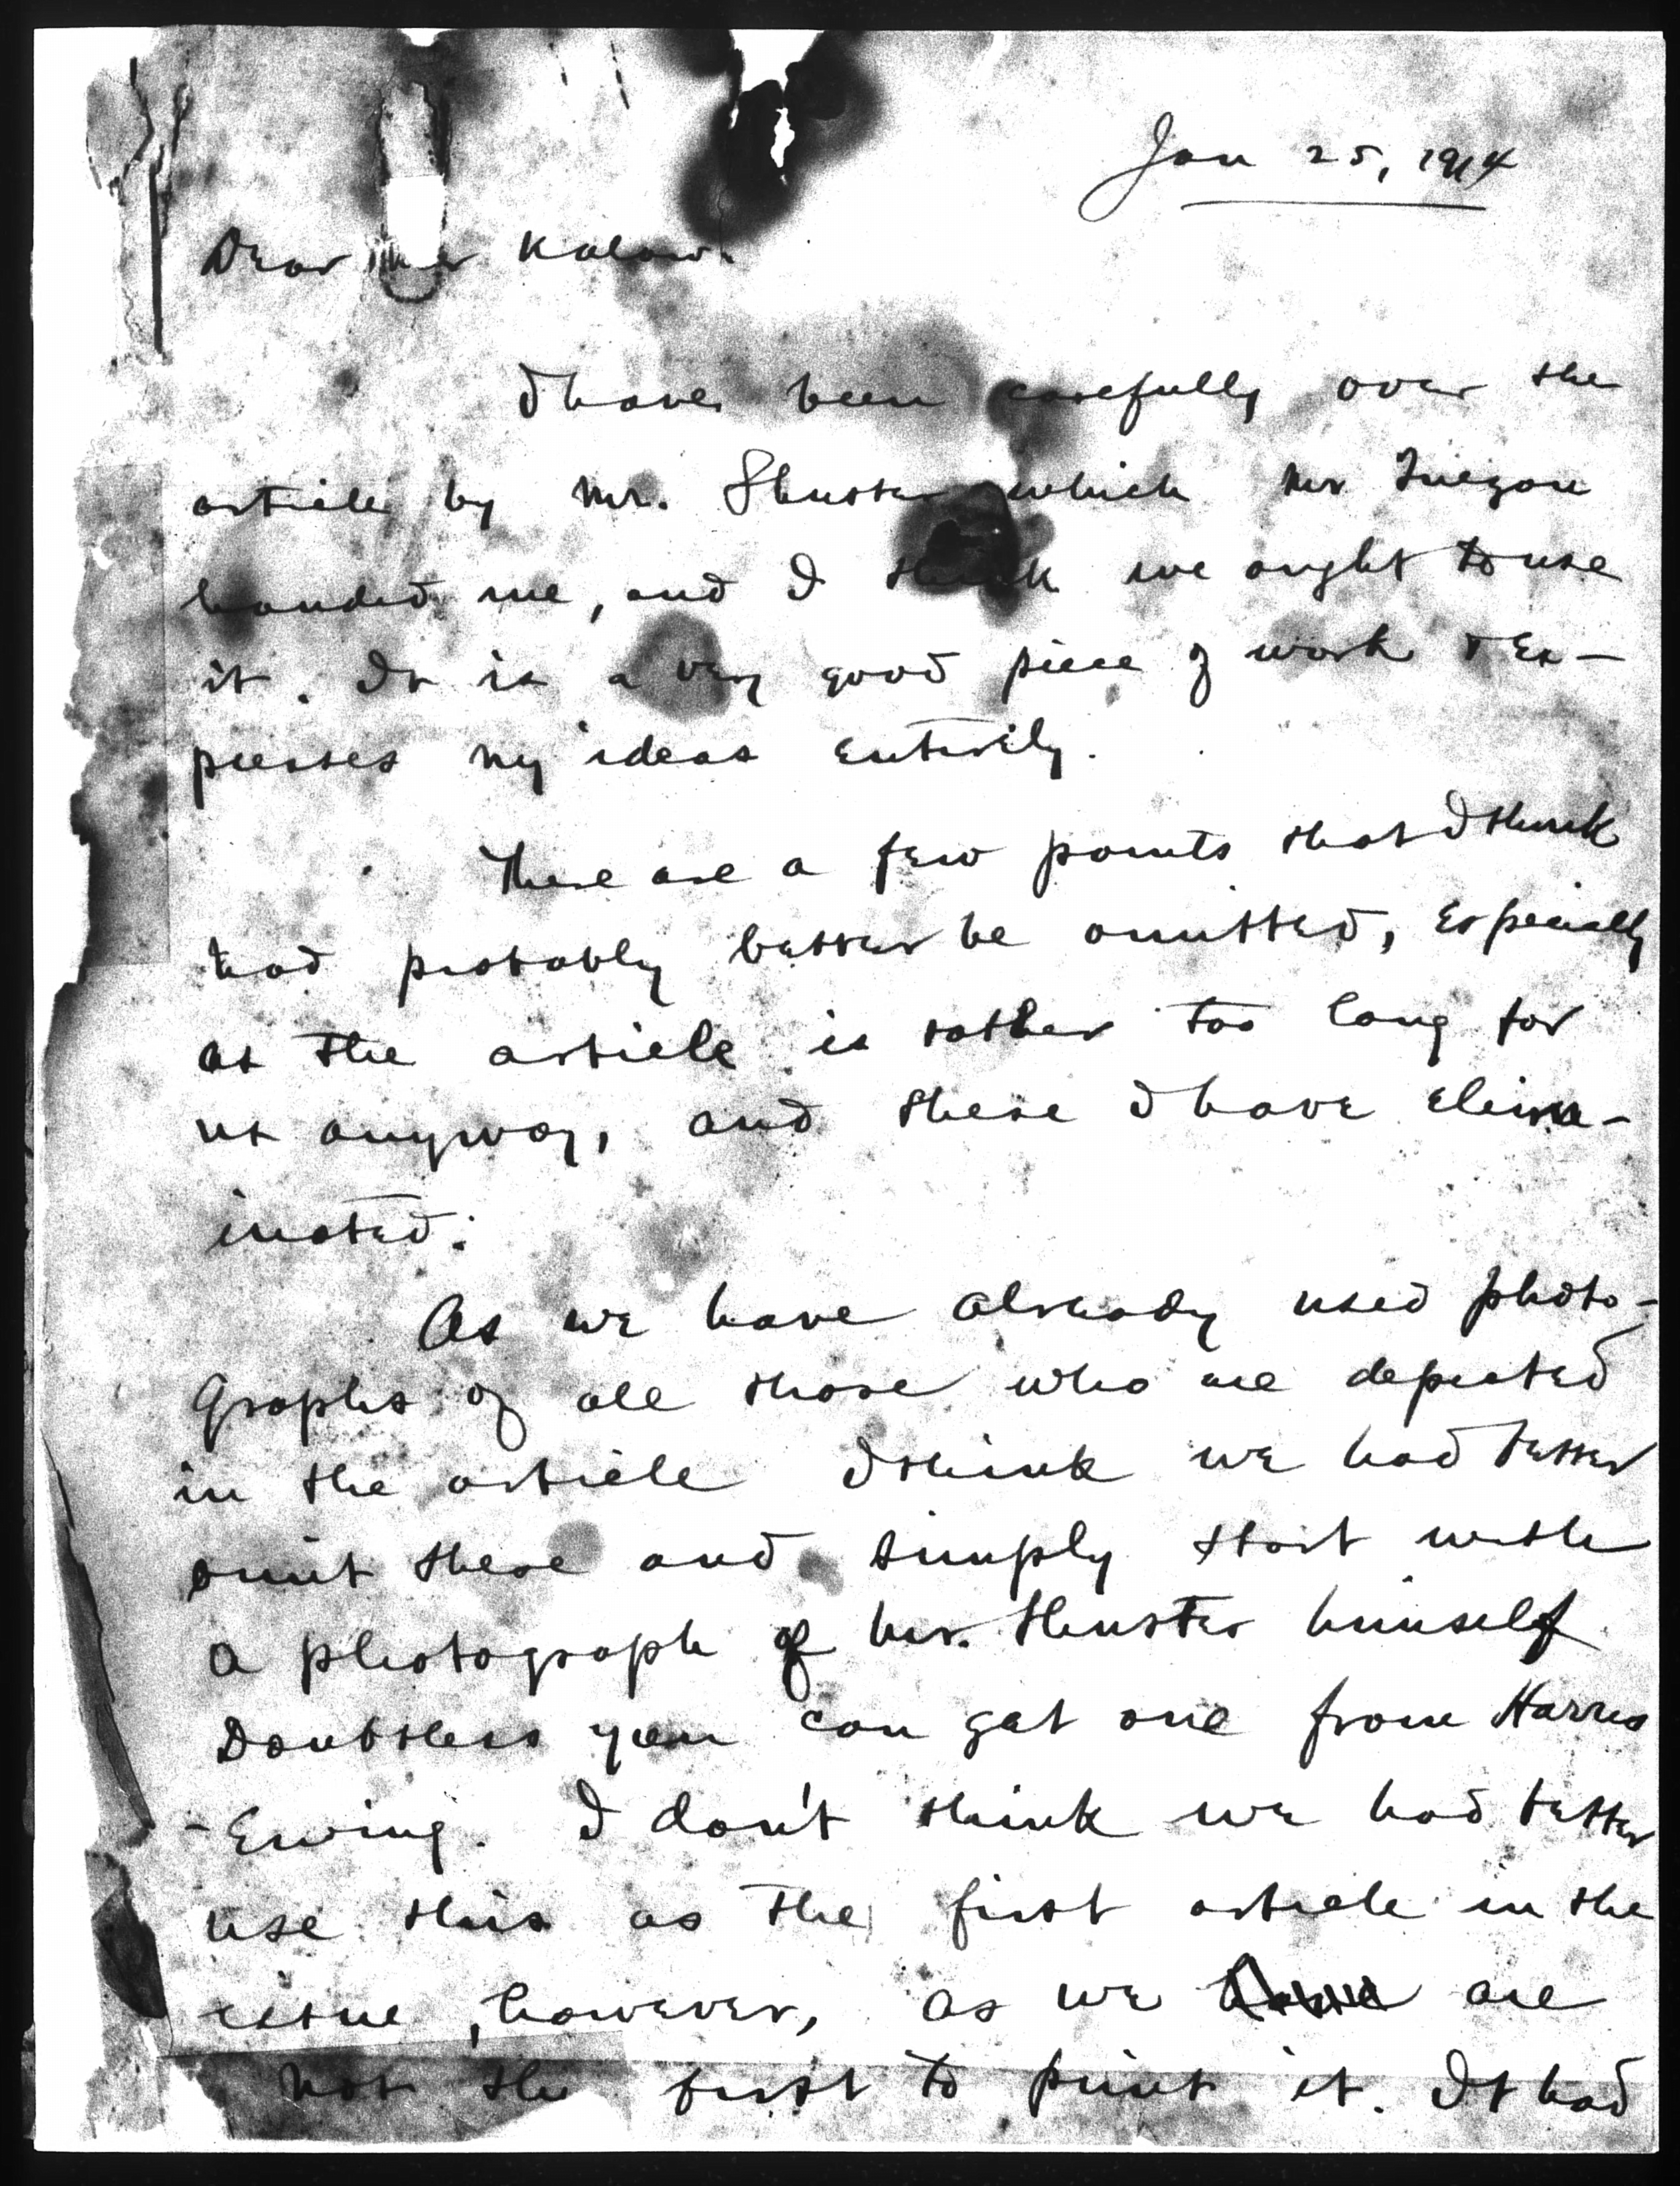 Jan 25, 1914
Dear Kalaw:
I have been carefully over the
article by Mr. Shuster which Mr Quezon
handed me, and I think we ought to use
it. It is a very good piece of work & ex-
presses my ideas entirely.
There are a few points that I think
had probably better be omitted, especially
as the article is rather too long for
us anyway, and these I have elim-
inated.
As we have already used photo-
graphs of all those who are depicted
in the article I think we had better
omit these and simply start with
a photograph of Mr. Shuster himself
Doubtless you can get one from Harris
-Ewing. I don't think we had better
use this as the first article in the
issue, however, as we are
not the first to print it. It had